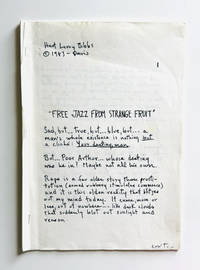 Hart Leroy Bibbs
© 1983 - Paris
1
"FREE JAZZ FROM STRANGE FRUIT"
Sad, but... true, but... blue, but... a
man's whole existence is nothing but
a cliché: Your destiny, man.
But... Poor Arthur... whose destiny
was he in? Maybe not all his own.
Rage is a far older story than prosti-
tution (armed robbery stimulates commerce)
and it is this older reality that slips
out my mind today. It came, more or
less, out of nowhere... like dark clouds
that suddenly blot out sunlight and
reason.
con't...